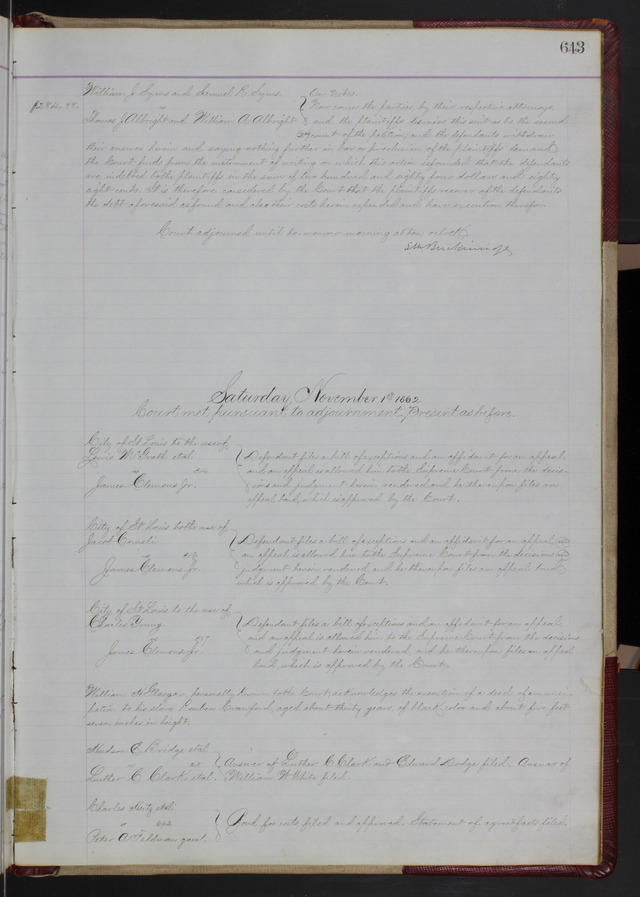 643
William J. Syms and Samuel R. Syms
vs
James J. Albright and William A. Albright
On Notes.
Now come the parties by their respective attorneys
and the plaintiffs dismiss this suit as to the second
count of the petition, and the defendants withdraw
their answer herein and saying nothing further in bar or preclusion of the plaintiffs demand
the Court finds from the instrument of writing on which this action is founded that the defendants
are indebted to the plaintiffs in the sum of two hundred and eighty four dollars and eighty
eight cents. It is therefore considered by the Court that the plaintiffs recover of the defendants
the debt aforesaid as found and also their costs herein expended and have execution therefor.
Court adjourned until to-morrow morning at ten o'clock
Saturday, November 1st 1862
Court met pursuant to adjournment, Present as before
City of St Louis to the use of
Lewis et al
vs
James Clemens Jr.
Defendant files a bill of exceptions and an affidavit for an appeal
and an appeal is allowed him to the Supreme Court from the decis-
ions and judgment herein rendered and he thereupon files an
appeal bond, which is approved by the Court.
City of St Louis to the use of
Jacob
vs
James Clemens Jr.
Defendant files a bill of exceptions and an affidavit for an appeal and
an appeal is allowed him to the Supreme Court from the decisions and
judgment herein rendered, and he thereupon files an appeal bond
which is approved by the Court.
City of St Louis to the use of
Charles Young
vs
James Clemens Jr.
Defendant files a bill of exceptions and an affidavit for an appeal
and an appeal is allowed him to the Supreme Court from the decisions
and judgment herein rendered, and he thereupon files an appeal
bond which is approved by the Court.
William personally known to the Court, acknowledges the execution of a deed of emanci-
pation to his slave Crawford, aged about thirty years, of black color and about five feet
seven inches in height.
Hudson E. Bridge et al
vs
Luther C. Clark et al.
Answer of Luther C. Clark and Edward Dodge filed. Answer of
William W White filed.
Charles et al
vs
Peter A. Feldman garn.
Bond for costs filed and approved. Statement of agreed facts filed.